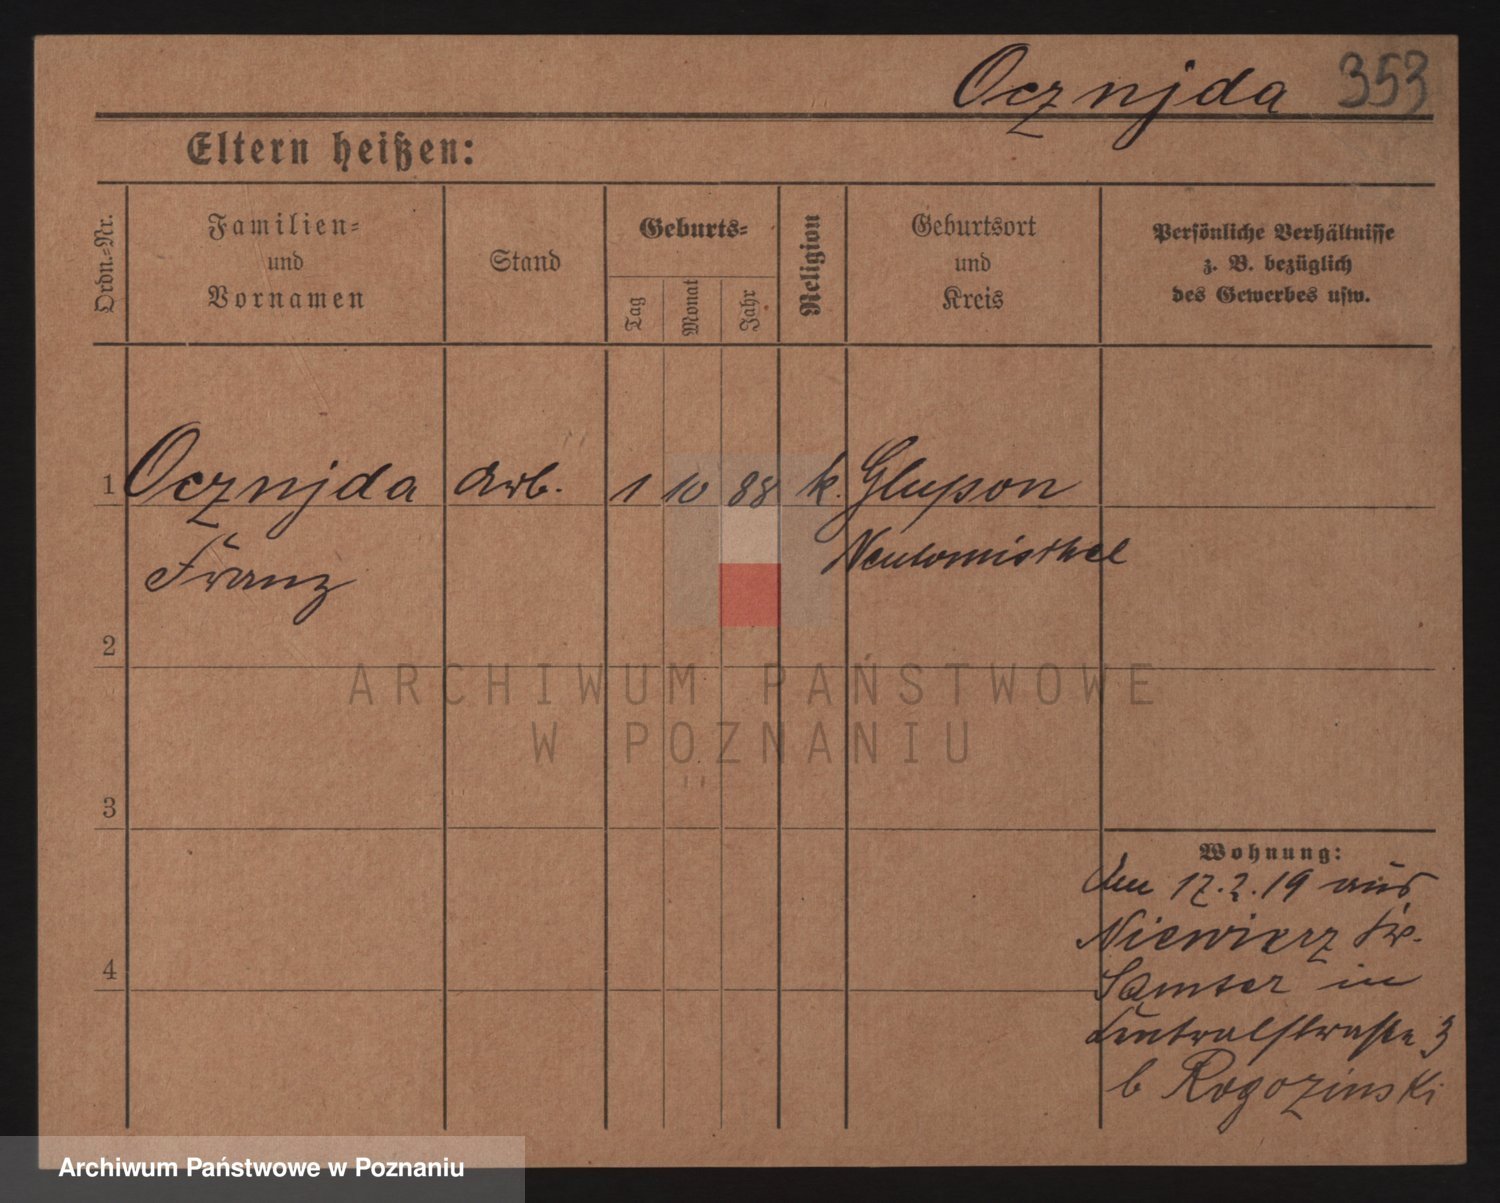 Ocznjda 353
Eltern heißen:
Ordn.-Nr.
Familien-
und
Vornamen
Stand
Geburts-
Tag
Monat
Jahr
Religion
Geburtsort
und
Kreis
Persönliche Verhältnisse
z. B. bezüglich
des Gewerbes usw.
1 Ocznjda Arb. 1 10 88 k. Glupon
Franz Neutomischel
2
3
4
Wohnung:
Am 17.2.19 aus
Niewierz Kr.
Samter in
Centralstraße 3
b Rogozinski
ARCHIWUM PAŃSTWOWE
W POZNANIU
Archiwum Państwowe w Poznaniu